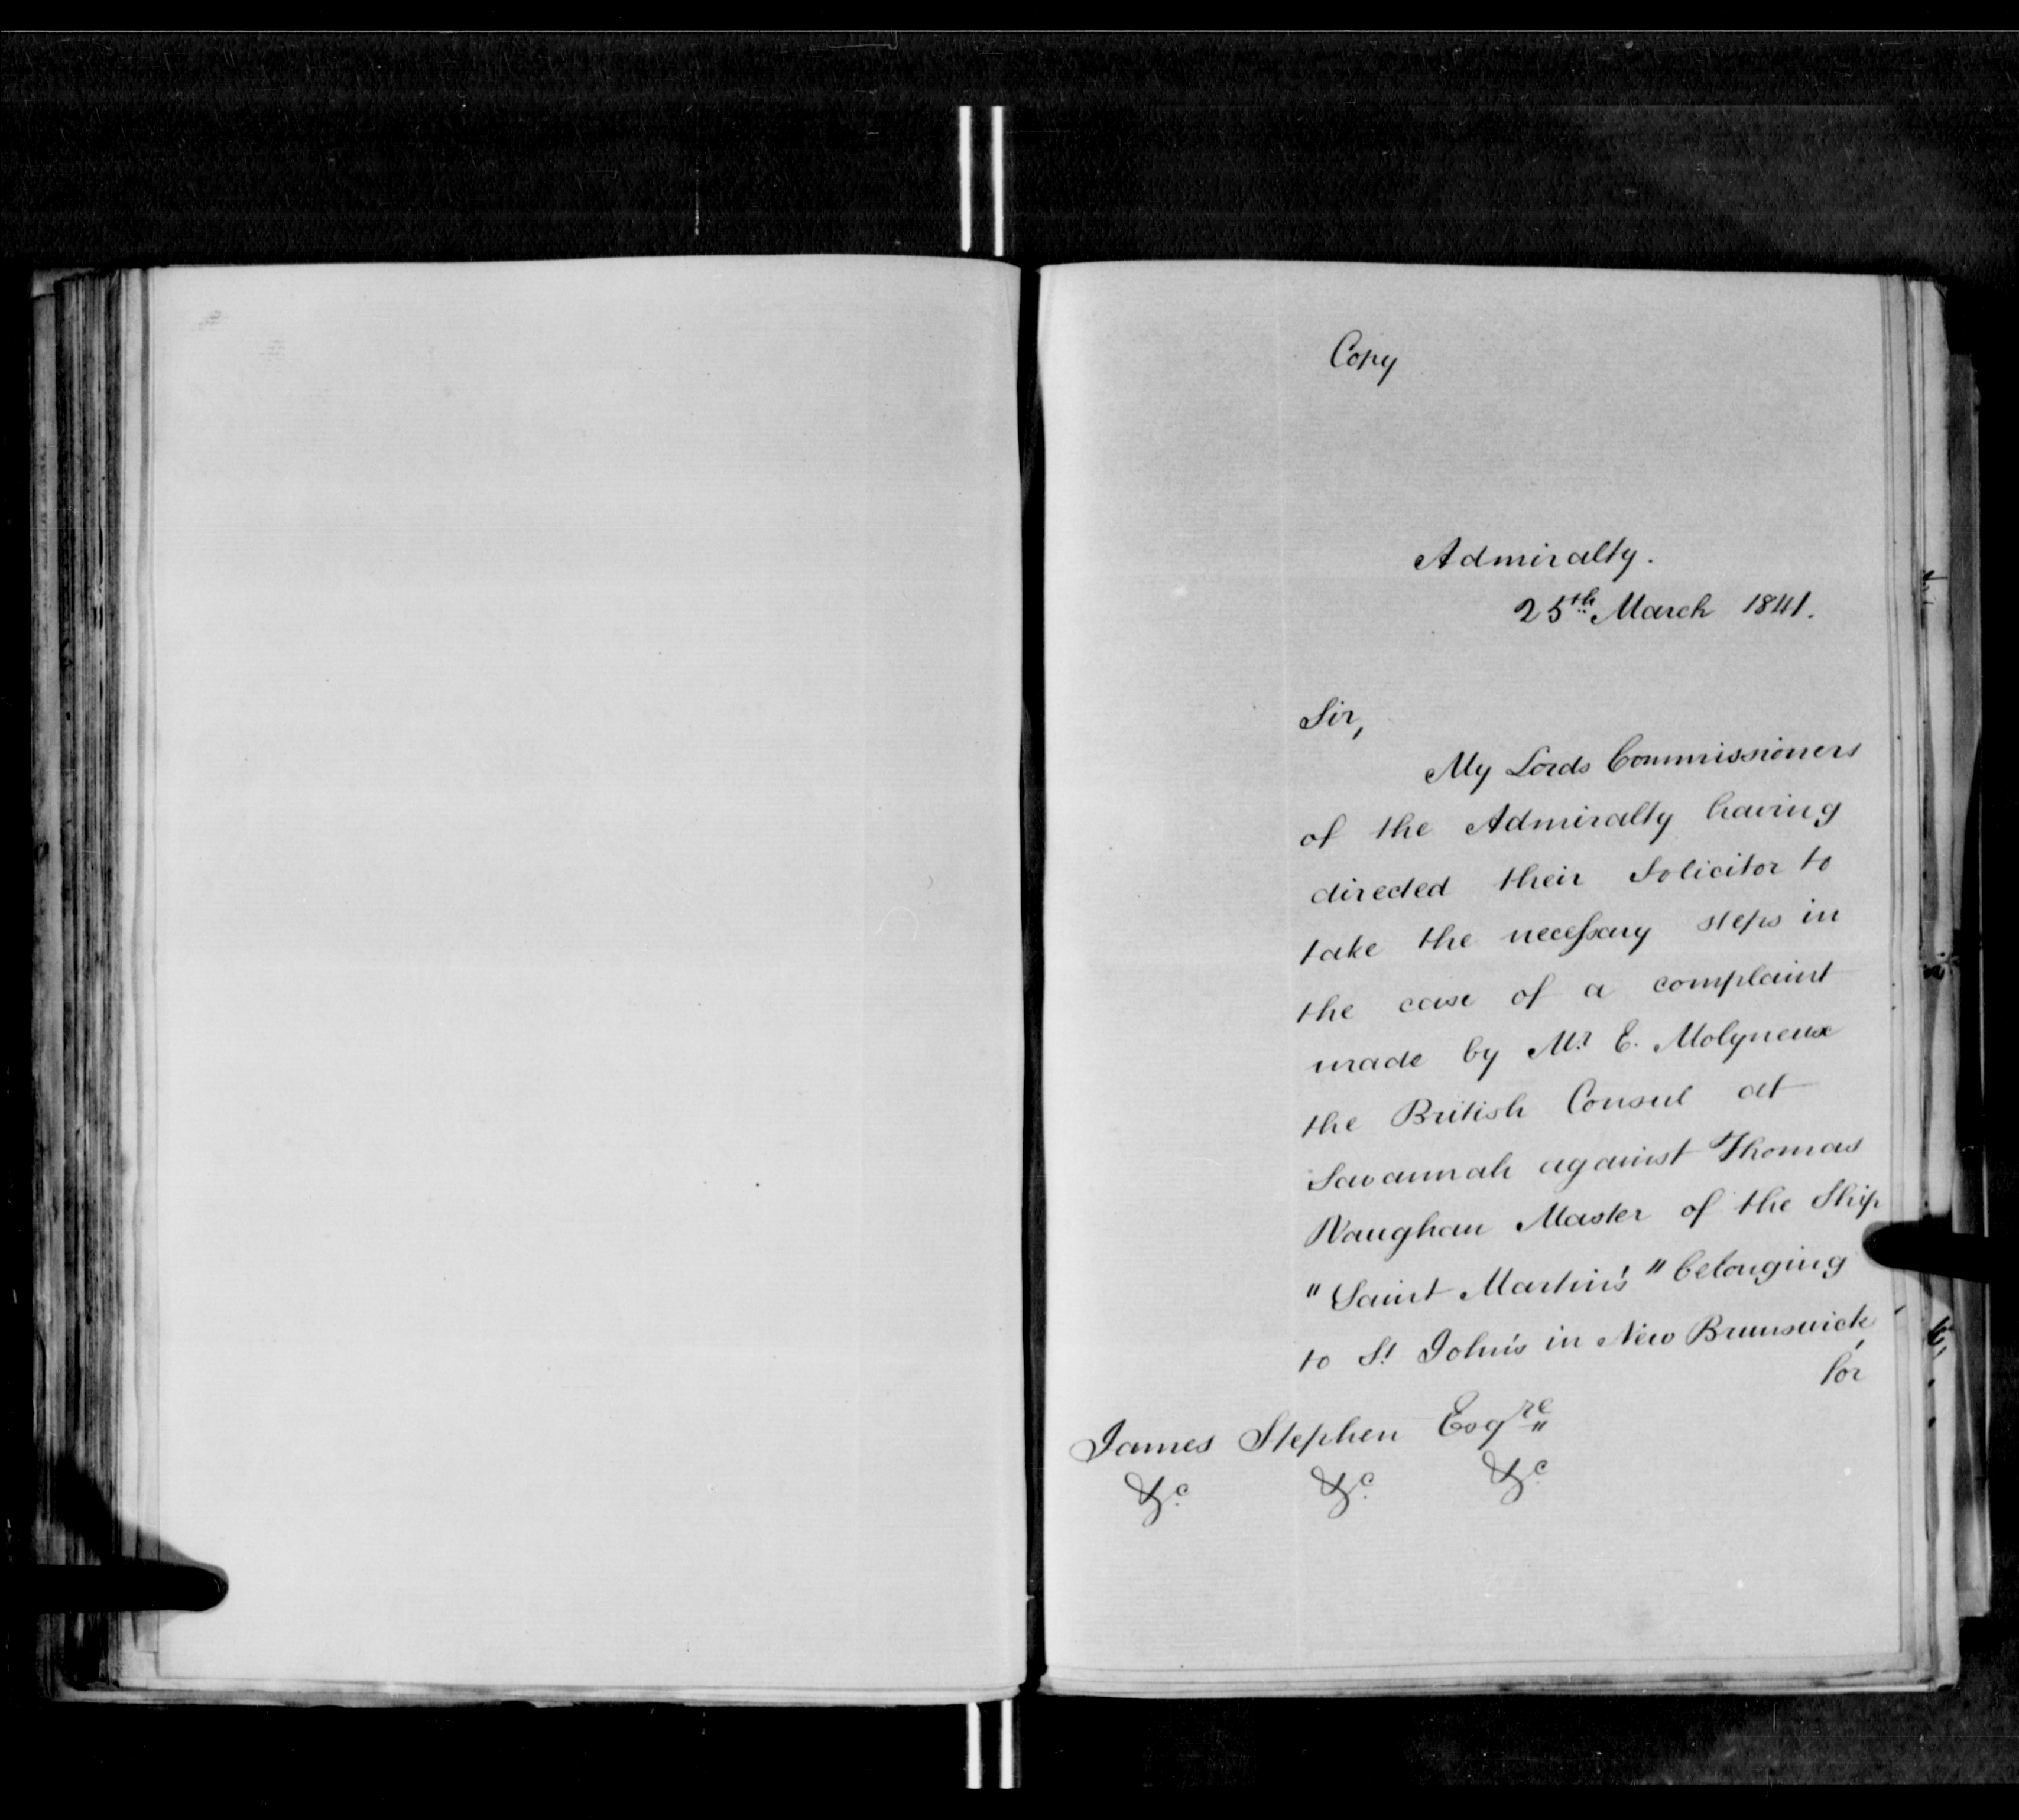 Copy
Admiralty.
25th March 1841.
Sir,
My Lords Commissioners
of the Admiralty having
directed their Solicitor to
take the necessary steps in
the case of a complaint
made by Mr. E. Molyneux
the British Consul at
Savannah against Thomas
Vaughan Master of the Ship
"Saint Martin's" belonging
to St. John's in New Brunswick,
for
James Stephen Esqre
&c &c &c